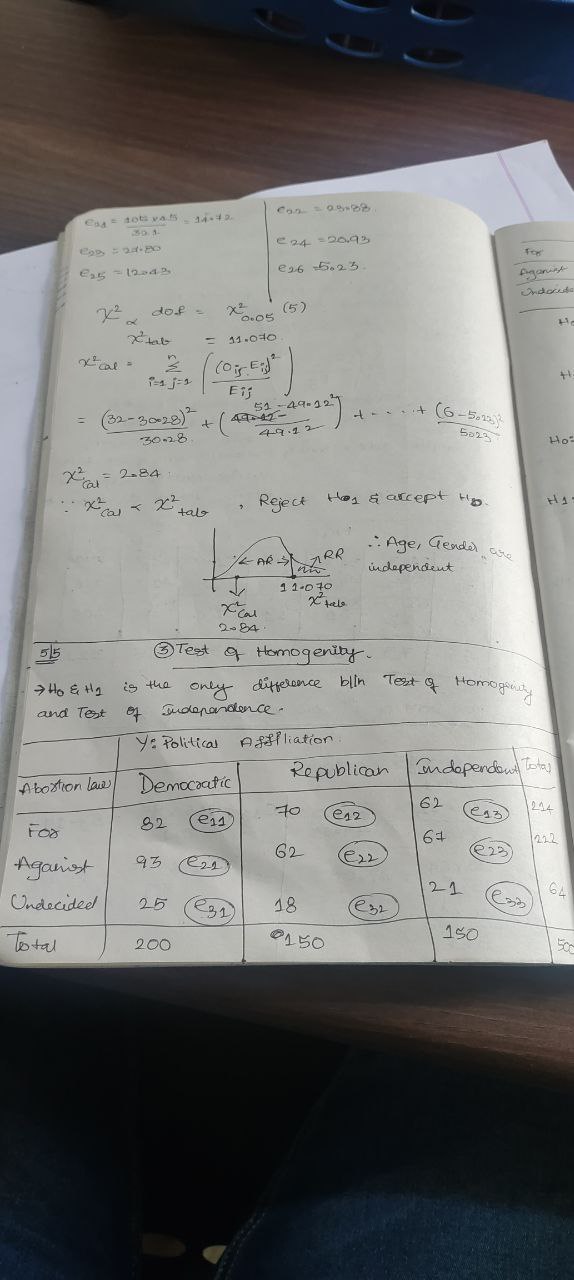 e21 = 105 × 45 / 321 = 14.72
e22 = 23.88.
e23 = 27.80
e24 = 20.93
e25 = 12.43
e26 = 5.23.
χ²α dof = χ²0.05 (5)
χ²tab = 11.070.
χ²cal = n Σ i=1 j=1 ((Oij - Eij)² / Eij)
= (32-30.28)² / 30.28 + (51-49.12² / 49.12) + - - - - + (6-5.23)² / 5.23
χ²cal = 2.84.
∵ χ²cal < χ²tab, Reject H1 & accept H0.
← AR → RR
∴ Age, Gender are
independent
11.070
χ²cal
χ²tab
2.84.
5/5
③ Test of Homogenity.
→ H0 & H1 is the only difference b/n Test of Homogenity
and Test of Independence.
Y: Political Affiliation.
Abortion law Democratic Republican Independent Total
For 82 e11 70 e12 62 e13 214
Aganist 93 e21 62 e22 67 e23 222
Undecided 25 e31 18 e32 21 e33 64
Total 200 150 150 500
For
Aganist
Undecide
H0=
H1